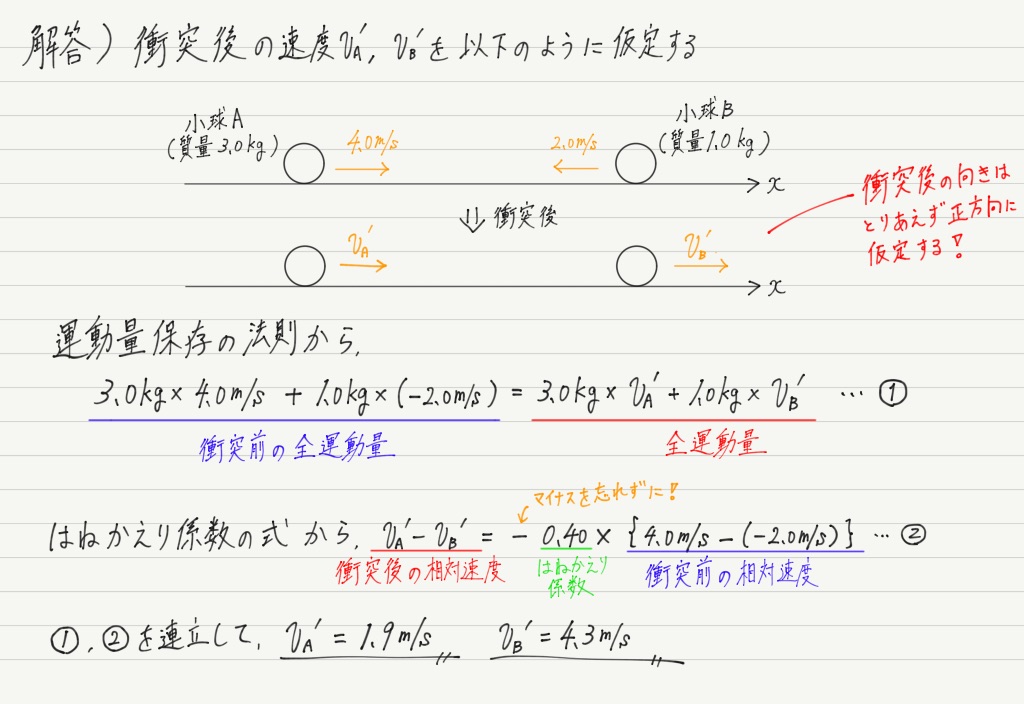 解答) 衝突後の速度 vA′, vB′を以下のように仮定する
小球A
(質量3.0kg)
4.0m/s
2.0m/s
小球B
(質量1.0kg)
x
衝突後
衝突後の向きは
とりあえず正方向に
仮定する!
vA′
vB′
x
運動量保存の法則から,
3.0kg × 4.0m/s + 1.0kg × (−2.0m/s) = 3.0kg × vA′ + 1.0kg × vB′ … ①
衝突前の全運動量
全運動量
マイナスを忘れずに!
はねかえり係数の式から, vA′ − vB′ = − 0.40 × {4.0m/s − (−2.0m/s)} … ②
衝突後の相対速度
はねかえり
係数
衝突前の相対速度
①, ②を連立して, vA′ = 1.9m/s vB′ = 4.3m/s